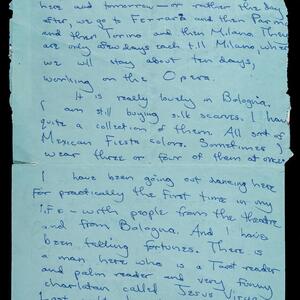 here and tomorrow — or rather the day
after, we go to Ferrara and then Parma
and then Torino and then Milano. These
are only a few days each till Milano where
we will stay about ten days,
working on the Opera.
It is really lovely in Bologna.
I am still buying silk scarves. I have
quite a collection of them. All sort of
Mexican Fiesta colors. Sometimes I
wear three or four of them at once.
I have been going out dancing here
for practically the first time in my
life — with people from the theatre
and from Bologna. And I have
been telling fortunes. There is
a man here who is a Tarot reader
and palm reader and very funny
charlatan called Jesus